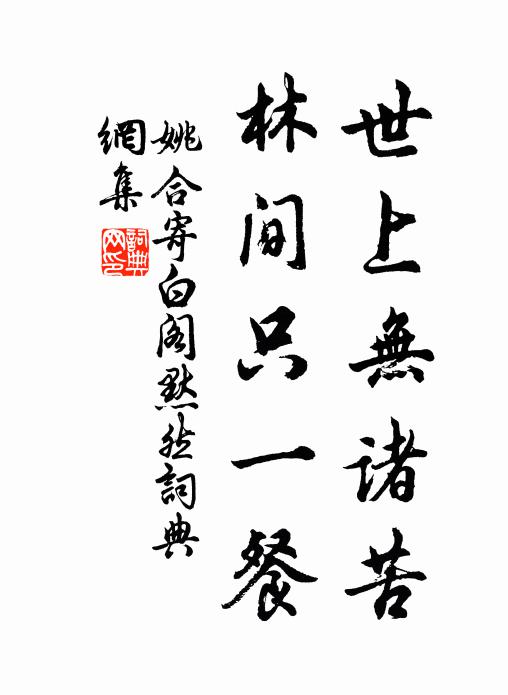 世上無諸苦
林間只一餐
姚合寄白阁默然詞典
網集
詞典
网印